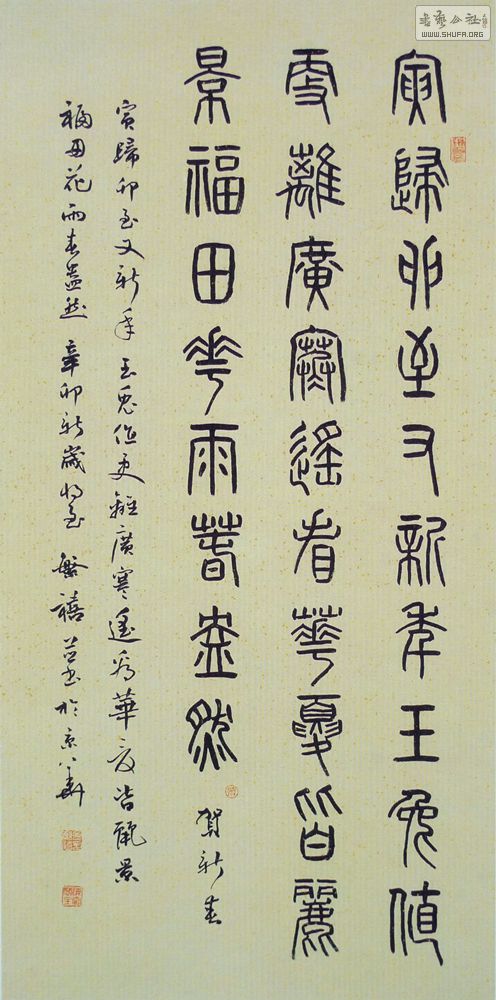 書藝公社
WWW.SHUFA.ORG
寅歸卯至又新年玉兔值
更離廣寒遙看華夏皆麗
景福田花雨春盎然 賀新春
寅歸卯至又新年玉兔值更離廣寒遙看華夏皆麗景
福田花雨春盎然 辛卯新歲將至 繁禧 書於京華